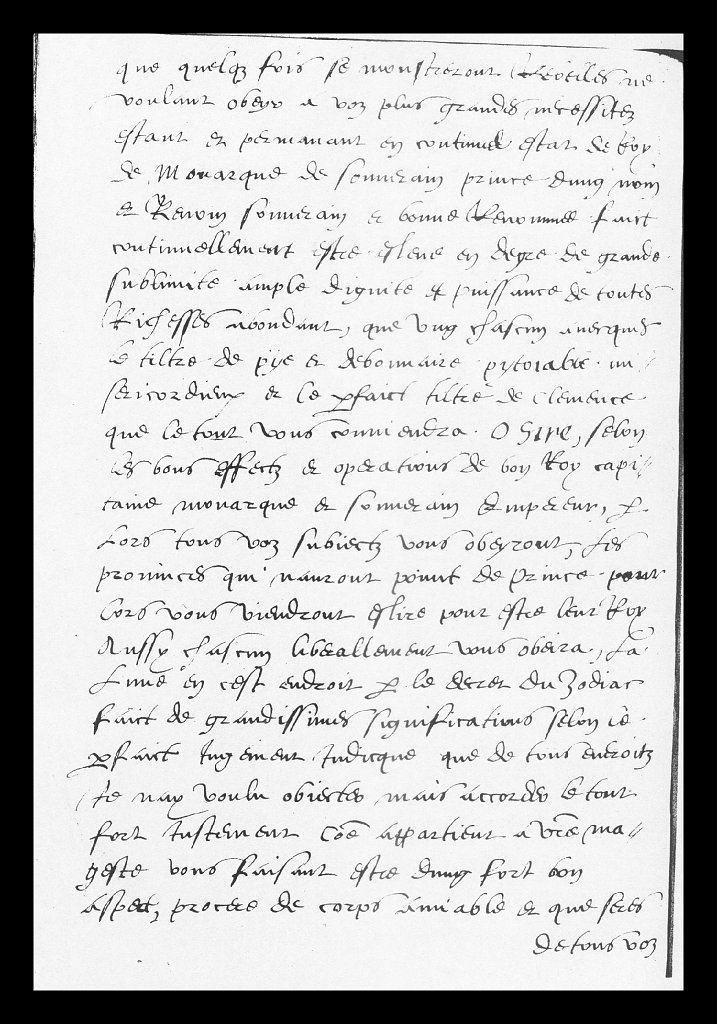 que quelqz fois se monstreront Reveilles ne
voulant obeyr a voz plus grandes necessitez
estant et permanant en continuel estat de Roy
de Monarque de souverain prince dung nom
et Renom souverain et bonne Renommee faict
continuellement estre esleve en degre de grande
sublimite ample dignite et puissance de toutes
Richesses abondant, que ung chascun avecques
le tiltre de pye et debonnaire pytoiable mi//
sericordieux et le pfaict tiltre de clemence
que le tout vous conviendra. O Sire, selon
les bons effectz et operations de bon Roy capi//
taine monarque et souverain Empereur, p
Lors tous voz subiectz vous obeyront, Les
provinces qui nauront point de prince pour
Lors vous viendront eslire pour estre leur Roy
Aussy chascun liberallement vous obeira, La
Lune en cest endroit p le decret du Zodiac
faict de grandissimes significations selon le
pfaict Jugement Judicque que de tous endroitz
Je nay voulu obiecter mais accorder le tout
fort Justement Coe appartient a vre ma//
geste vous faisant estre dung fort bon
aspect, procere de corps amiable et que seres
de tous voz